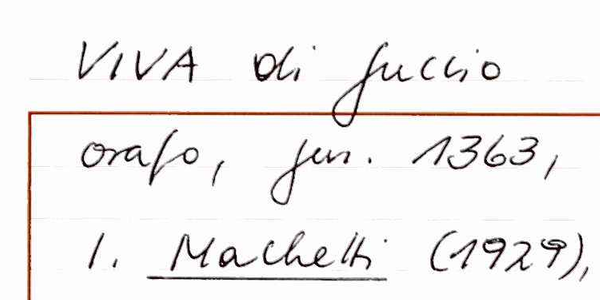 VIVA di Guccio
orafo, gen. 1363,
I. Machetti (1929),